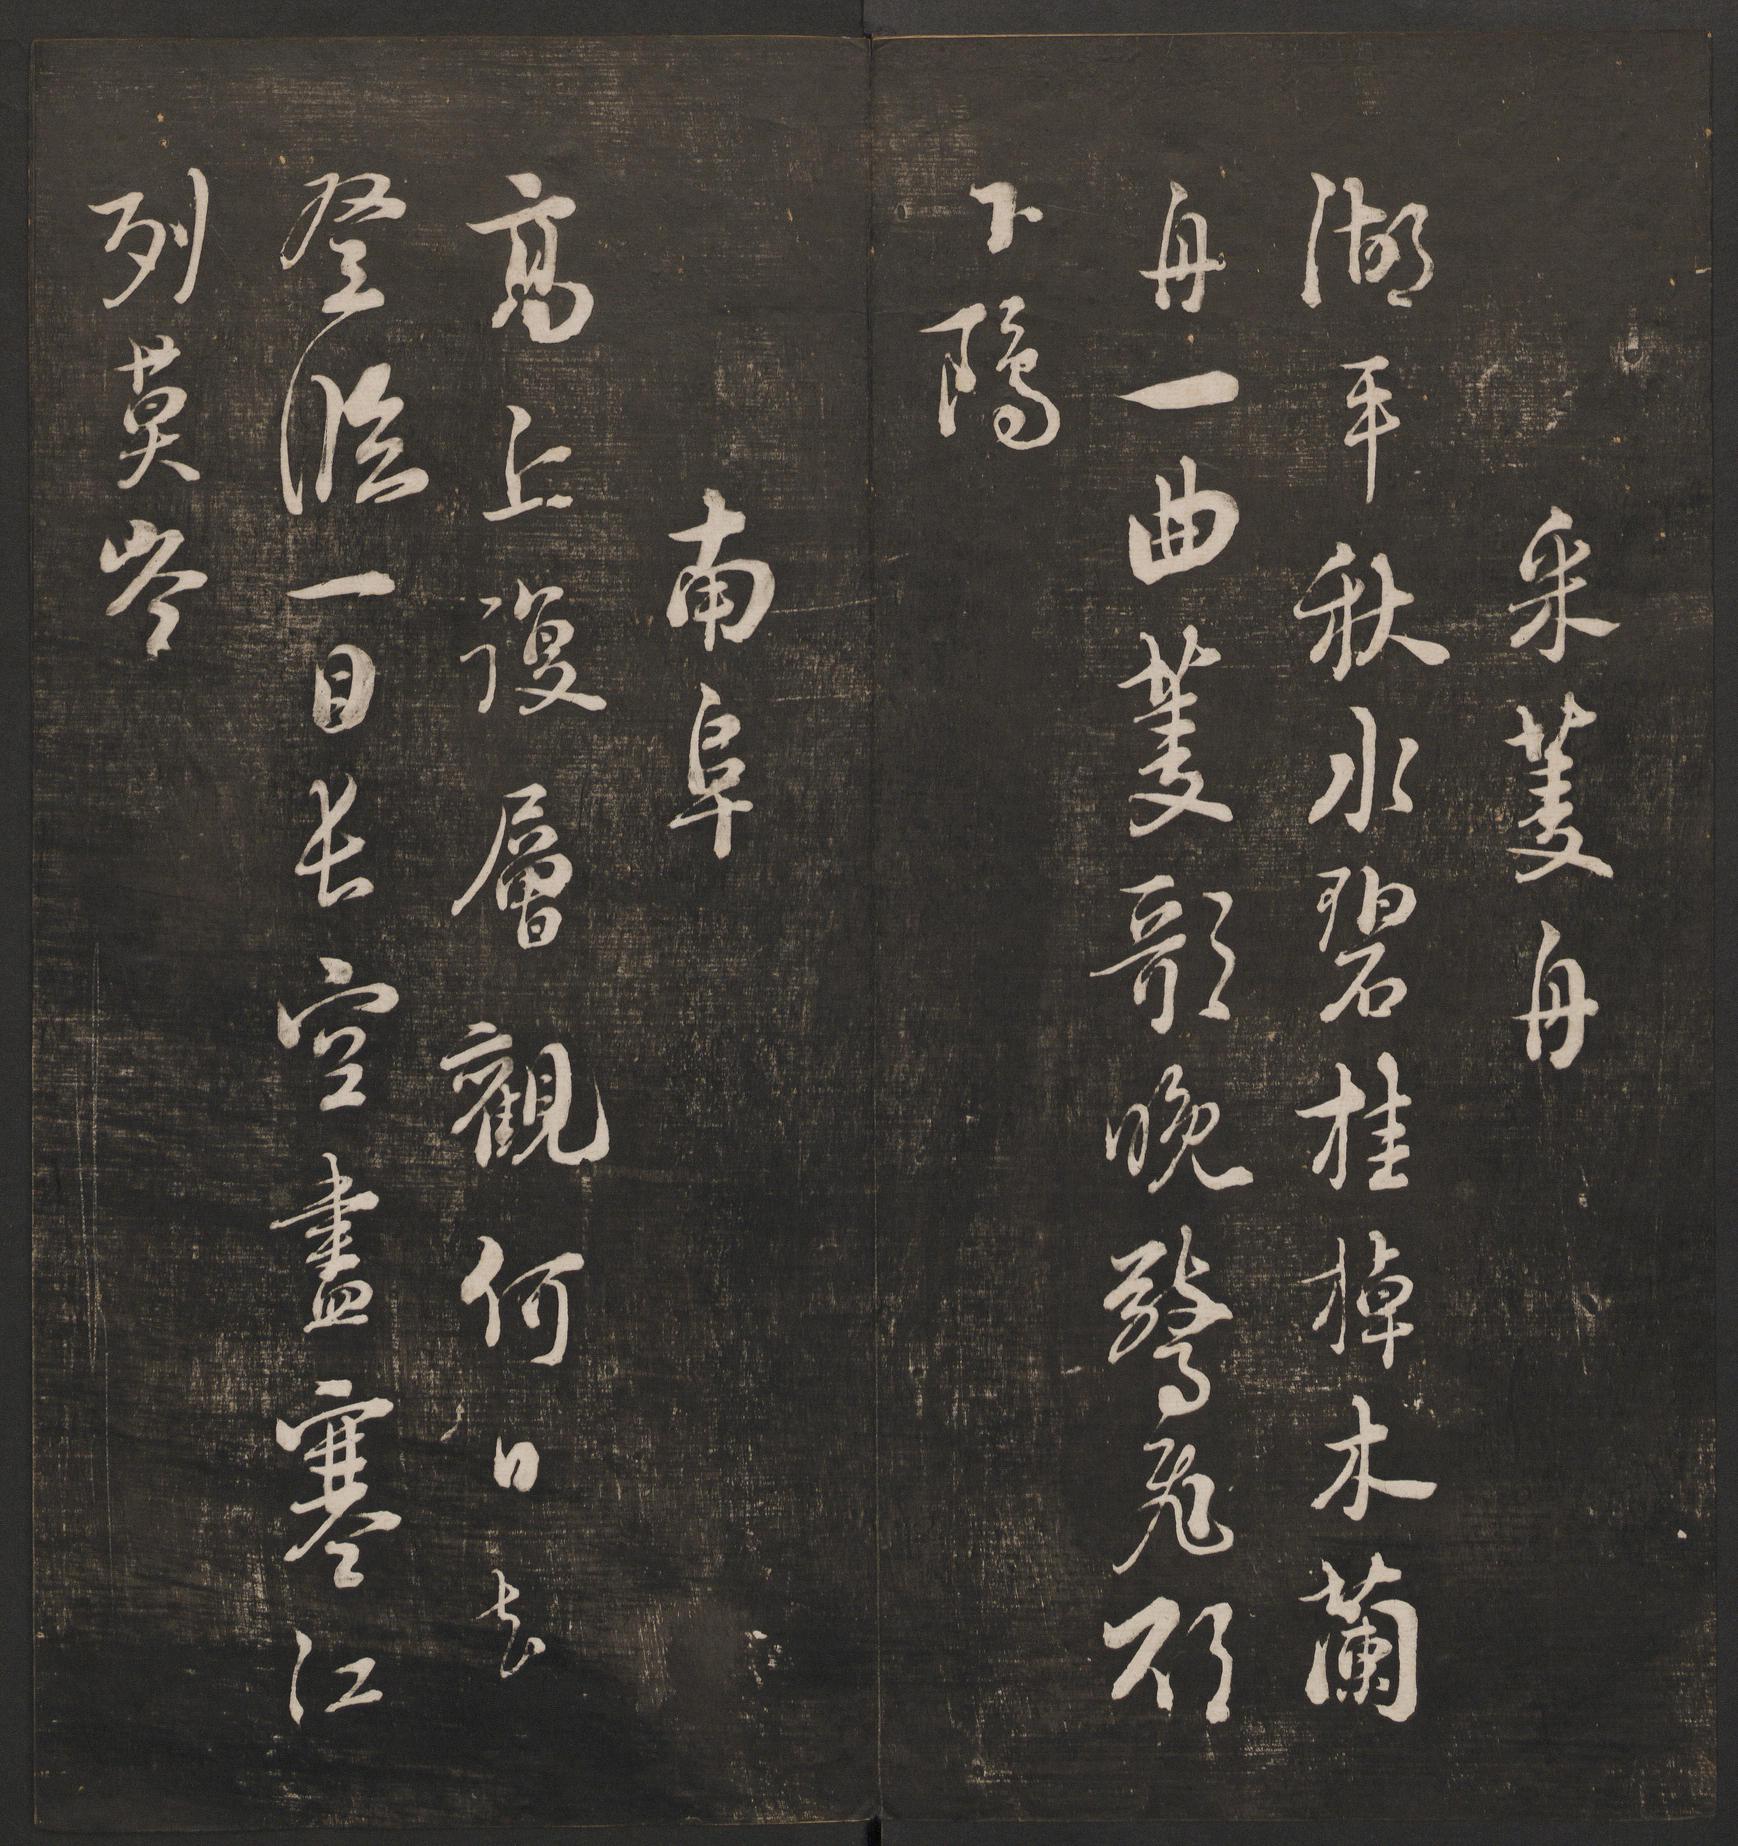 采菱舟
湖平秋水碧桂棹木蘭
舟一曲菱歌晚驚飛欲
下鷗
南阜
高上復層觀何日去
登臨一目長空盡寒江
列莫岑